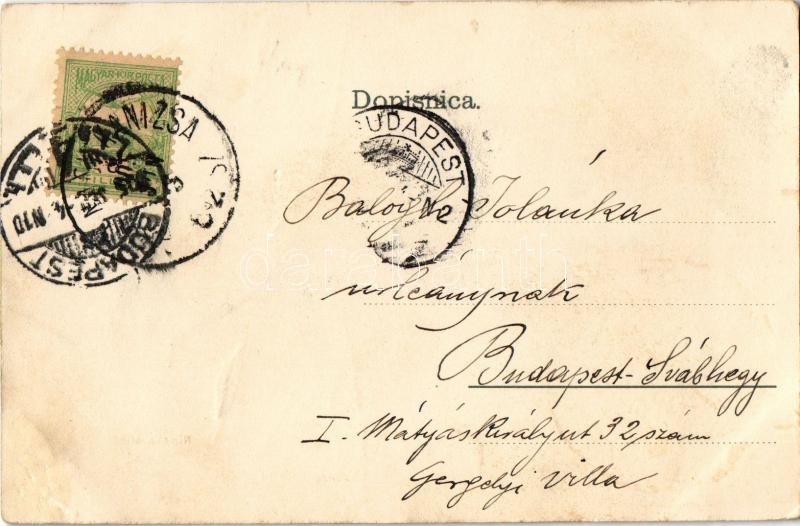 MAGYAR KIR. POSTA
NIZSA
BUDAPEST
Dopisnica.
BUDAPEST
N2
Balogh Jolánka
urleánynak
Budapest-Svábhegy
I. Mátyáskirályut 32, szám
Gergelyi villa
darabanth